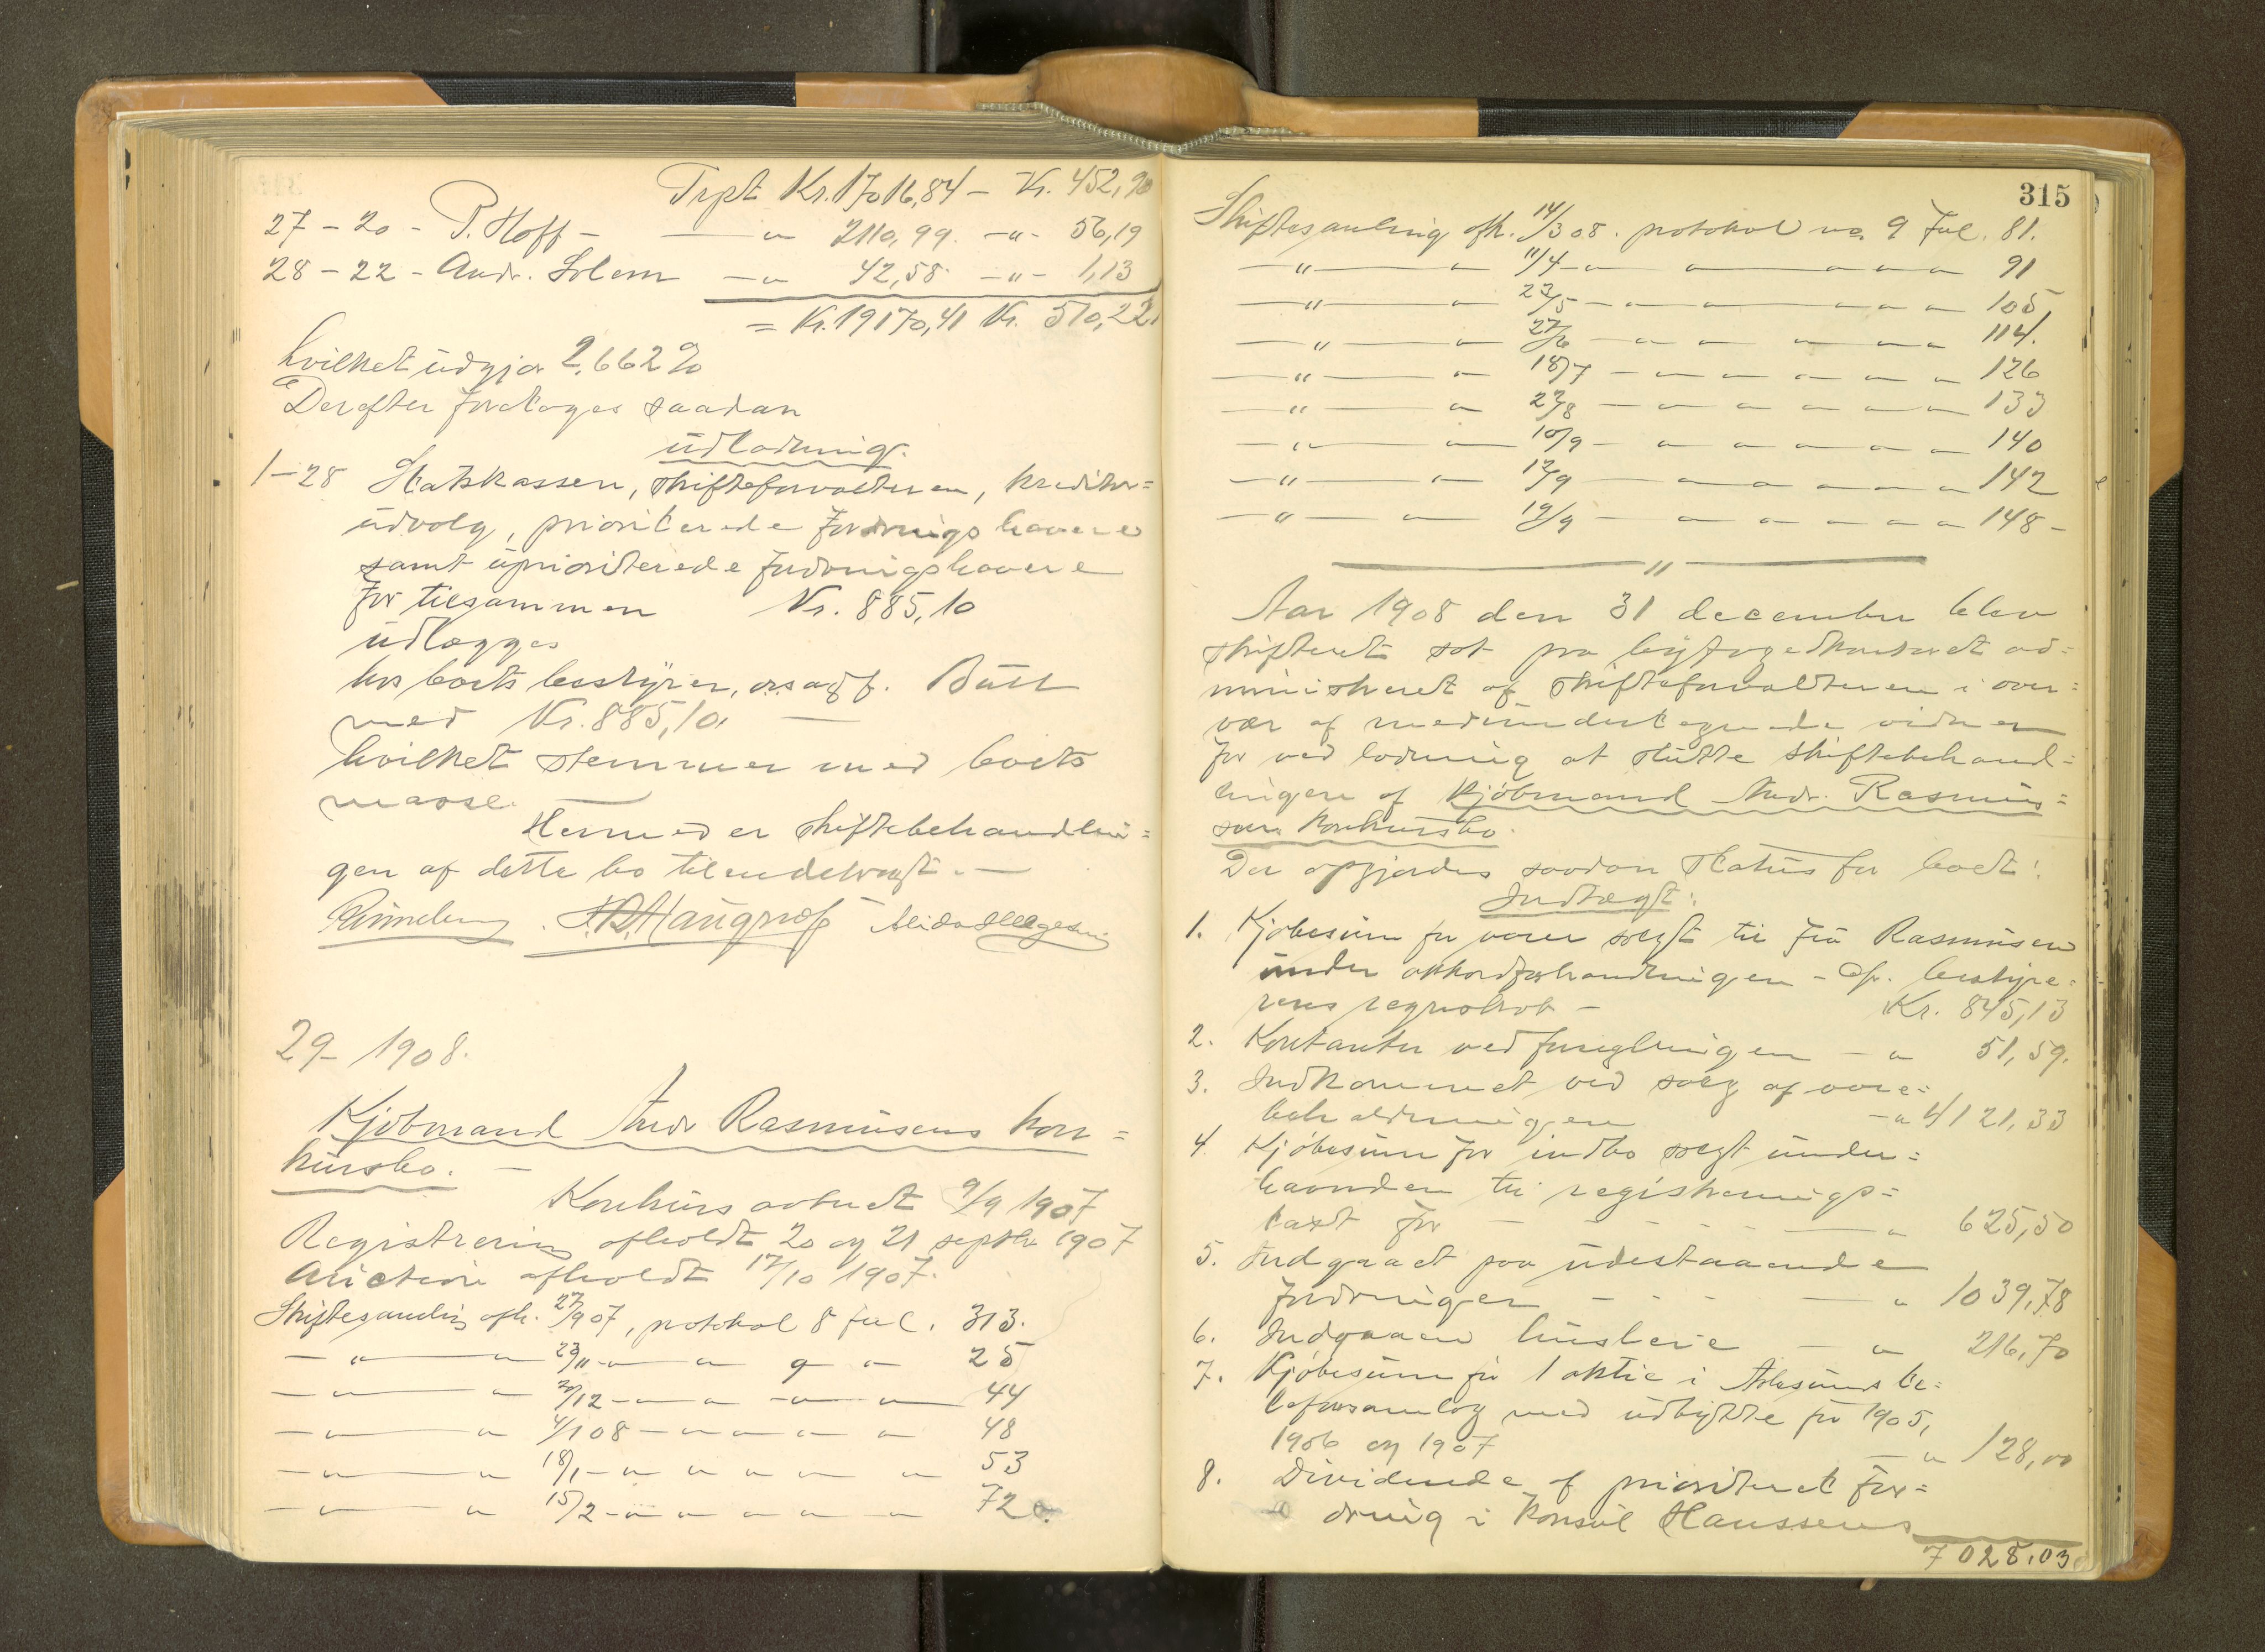 Trpt Kr. 17016,84 – Kr. 452,90
27 – 20 – P. Hoff – — " 2110,99. –"– 56,19
28 – 22 – Andr. Solem — " 42,58 –"– 1,13
= Kr. 19170,41 Kr. 510,22
hvilket udgjør 2,662 %
Derefter foretoges saadan
udlodning.
1–28 Statskassen, skifteforvalteren, kreditor=
udvalg, prioriterede fordringshavere
samt uprioriterede fordringshavere
for tilsammen Kr. 885,10
udlægges
hos boets bestyrer, o.r.sagf. Bull
med Kr. 885,10. —
hvilket stemmer med boets
masse. —
Hermed er skiftebehandlin=
gen af dette bo tilendebragt. —
29 – 1908.
Kjøbmand Andr Rasmusens kon=
kursbo. —
Konkurs aabnet 9/9 1907
Registrering afholdt 20 og 21 septbr 1907
Auction afholdt 17/10 1907.
Skiftesamling afh. 27/9 07, protokol 8 fol. 313.
— " — " 23/11 – " – " 9 " 25
— " — " 20/12 – " – " – " – " 44
— " — " 4/1 08 – " – " – " – " 48
— " — " 18/1 – " – " – " – " – " 53
— " — " 15/2 – " – " – " – " – " 72
315
Skiftesamling afh. 14/3 08. protokol no. 9 Fol. 81.
— " — " 11/4 – " – " – " – " – " 91
— " — " 23/5 – " – " – " – " – " 105
— " — " 27/6 – " – " – " – " – " 114.
— " — " 18/7 – " – " – " – " – " 126
— " — " 29/8 – " – " – " – " – " 133
— " — " 10/9 – " – " – " – " – " 140
— " — " 12/9 – " – " – " – " – " 142
— " — " 19/9 – " – " – " – " – " 148 –
— " —
Aar 1908 den 31 december blev
skifteret sat paa byfogedkontoret ad=
ministreret af skifteforvalteren i over=
vær af medundertegnede vidner
for ved lodning at slutte skiftebehand=
lingen af kjøbmand Andr. Rasmus=
sens konkursbo.
Der opgjordes saadan status for boet:
Indtægt:
1. Kjøbesum for varer solgt til fru Rasmusen
under akkordforhandlingen – cfr. bestyre=
rens regnskab – Kr. 845,13
2. Kontanter ved forseglingen – " 51,59.
3. Indkommet ved salg af vare=
beholdningen – " 4121,33
4. Kjøbesum for indbo solgt under=
haanden til registrerings=
taxt for – – – – – — " 625,50
5. Indgaaet paa udestaaende
fordringer – – – — " 1039,78
6. Indgaaet husleie – " 216,70
7. Kjøbesum for 1 aktie i Aalesunds te=
lefonsamlag med udbytte for 1905,
1906 og 1907 – " 128,00
8. Dividende af prioriteret for=
dring i konsul Hanssens
7028,03